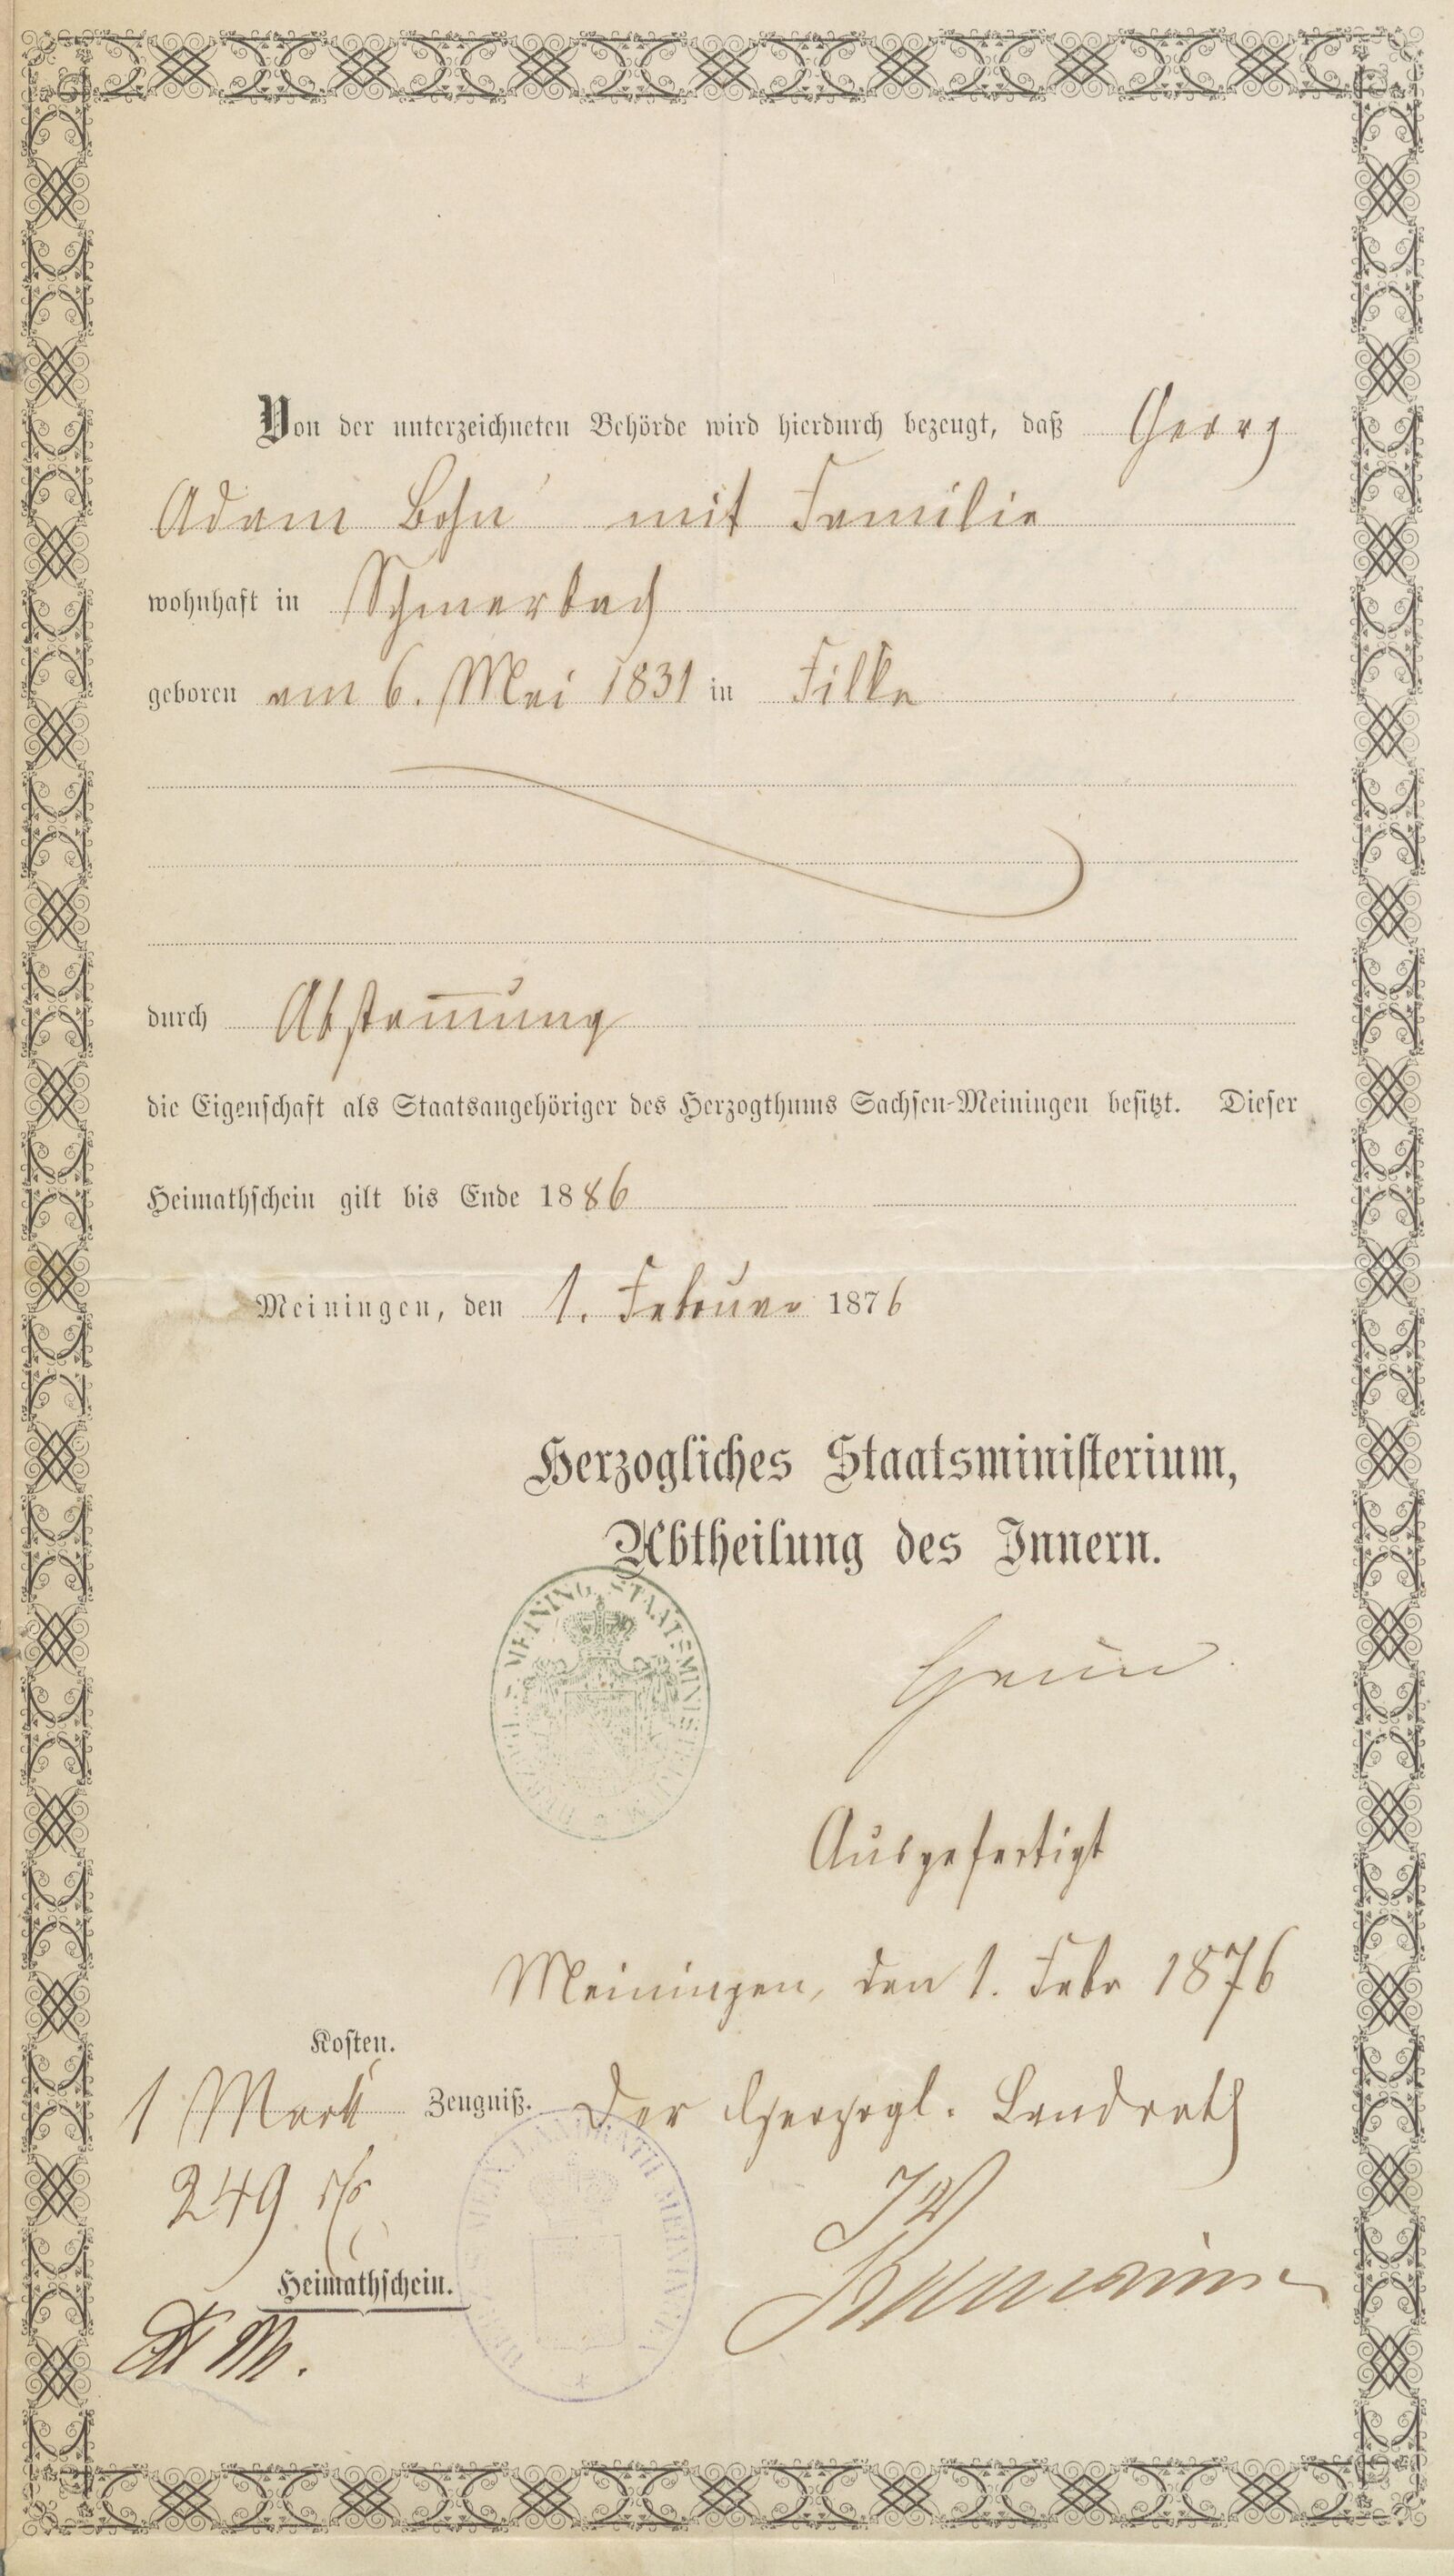 Von der unterzeichneten Behörde wird hierdurch bezeugt, daß Georg
Adam Bohn mit Familie
wohnhaft in Schmerbach
geboren am 6. Mai 1831 in Filke
durch Abstam̅ung
die Eigenschaft als Staatsangehöriger des Herzogthums Sachsen-Meiningen besitzt. Dieser
Heimathschein gilt bis Ende 1886
Meiningen, den 1. Februar 1876
Herzogliches Staatsministerium,
Abtheilung des Innern.
MEINING. STAATSMINISTERIUM
Ausgefertigt
Meiningen, den 1. Febr 1876
Kosten.
1 Mark Zeugniß. Der Herzogl. Landrath
LANDRATH MEININGEN
249
Heimathschein.